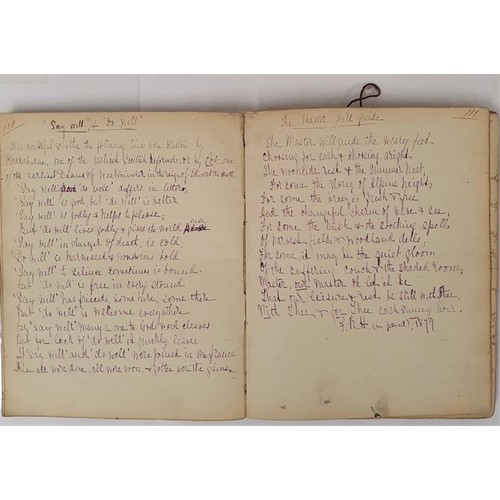 110
"Say Well" & "Do Well"
It is doubtful whether the following lines were written by
Wedderburne, one of the earliest Scottish Reformers, or by Cox one
of the earliest Deans of Westminster in the reign of Edward the Sixth
"Say Well" & "do well" differs in letter,
"Say well" is good but "do well" is better
"Say well" is godly & helps to please,
But "do well" lives godly & gives the world
"Say well" in danger of death, is cold
"Do well" is harnessed & wondrous bold
"Say well" to silence sometimes is bound
But "do well" is free in every stound
"Say well" has friends some here some there
But "do well" is welcome everywhere
By "say well" many a one to God's Word cleaves
But for lack of "do well" it quickly leaves
If "say well" and "do well" were joined in one frame
Then all were done, all were won, & gotten were the gains.
111
The Master Will guide
The Master Will guide the weary feet
Choosing for each & choosing aright,
The noontide rest & the summer heat,
For some the glory of Alpine height,
For some the breezes fresh & free
And the changeful charm of wave & sea;
For some the hush & the soothing spells
Of harvest fields & woodland dells;
For some it may be the quiet gloom
Of the suffering couch & the shaded room,
Master, our Master oh let it be
That our leisure & rest be still with Thee,
With Thee, & for Thee each sunny hour.
F.R.H. (in pencil) 1879